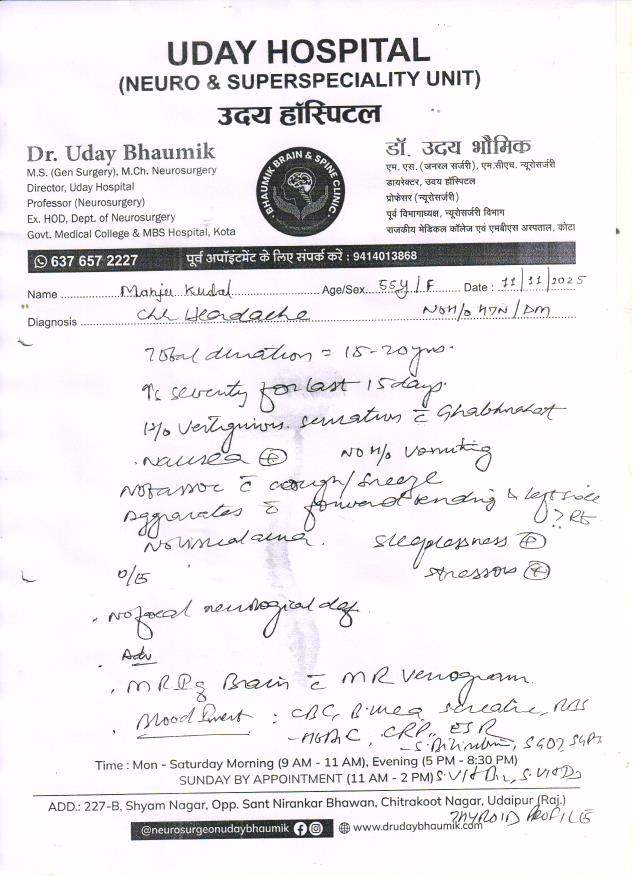 UDAY HOSPITAL
(NEURO & SUPERSPECIALITY UNIT)
उदय हॉस्पिटल
Dr. Uday Bhaumik
M.S. (Gen Surgery), M.Ch. Neurosurgery
Director, Uday Hospital
Professor (Neurosurgery)
Ex. HOD, Dept. of Neurosurgery
Govt. Medical College & MBS Hospital, Kota
BHAUMIK BRAIN & SPINE CLINIC
डॉ. उदय भौमिक
एम. एस. (जनरल सर्जरी), एम.सीएच. न्यूरोसर्जरी
डायरेक्टर, उदय हॉस्पिटल
प्रोफेसर (न्यूरोसर्जरी)
पूर्व विभागाध्यक्ष, न्यूरोसर्जरी विभाग
राजकीय मेडिकल कॉलेज एवं एमबीएस अस्पताल, कोटा
637 657 2227 पूर्व अपॉइंटमेंट के लिए संपर्क करें : 9414013868
Name Manju Kudal Age/Sex 55y/F Date : 11/11/2025
Diagnosis Chr Headache No H/o HTN/DM
Total duration = 15-20yrs.
↑s severity for last 15 days.
H/o Vertiginous sensation c̄ Ghabhrahat
Nausea ⊕ No H/o Vomiting
Not assoc c̄ cough/sneeze
Aggravates c̄ forward bending & left side
No visual aura. Sleeplessness ⊕
O/E Stressors ⊕
No focal neurological def
Adv
MRIg Brain c̄ MR Venogram.
Blood Invest : CBC, B. Urea, S creatine, RBS
HbA1C, CRP, ESR
S. Bilirubin, SGOT SGPT
Time : Mon - Saturday Morning (9 AM - 11 AM), Evening (5 PM - 8:30 PM)
SUNDAY BY APPOINTMENT (11 AM - 2 PM) S. Vit B12, S. Vit D3
ADD.: 227-B, Shyam Nagar, Opp. Sant Nirankar Bhawan, Chitrakoot Nagar, Udaipur (Raj.)
THYROID PROFILE
@neurosurgeonudaybhaumik www.drudaybhaumik.com